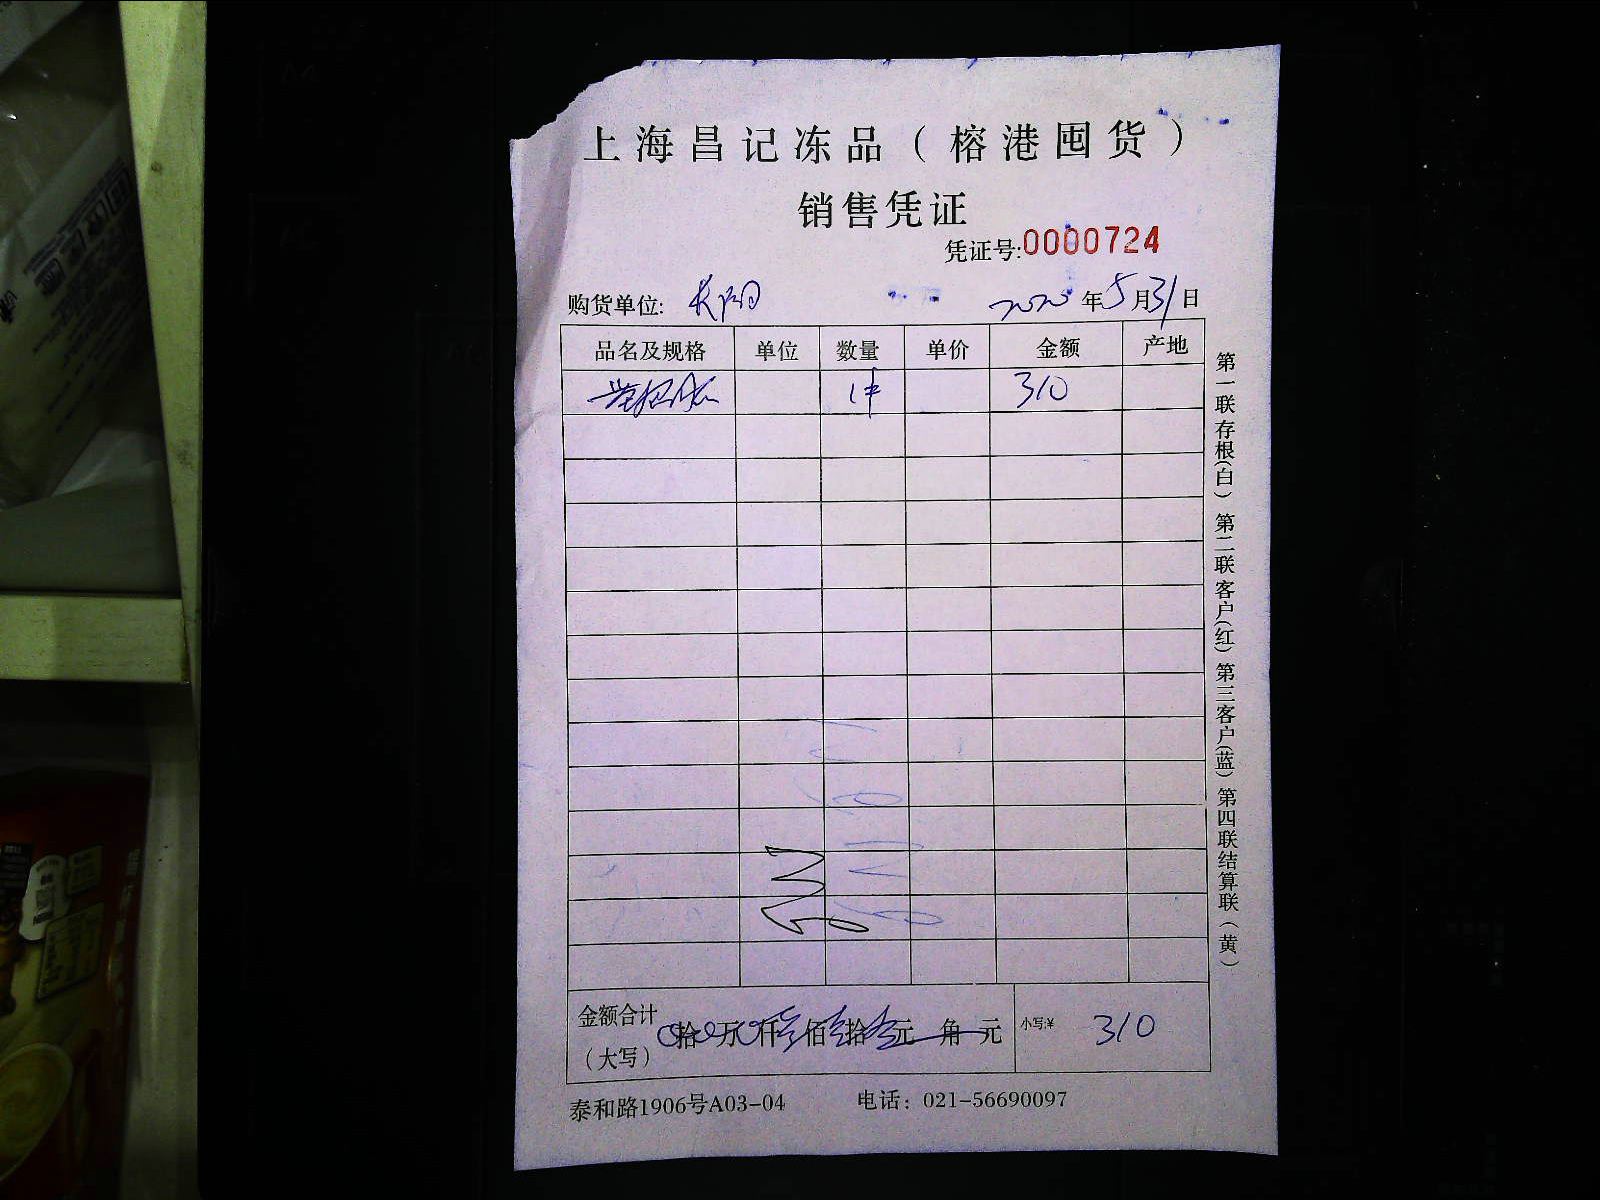 上海昌记冻品（榕港囤货）
销售凭证
凭证号:0000724
购货单位: 长阳 2020年5月31日
品名及规格 单位 数量 单价 金额 产地
1件 310
金额合计（大写） 拾 万 仟 佰 拾 元 角 元 小写:¥ 310
泰和路1906号A03-04 电话：021-56690097
第一联存根（白） 第二联客户（红） 第三客户（蓝） 第四联结算联（黄）